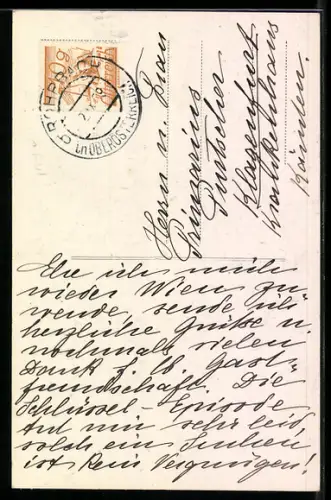 ROHRBACH
IN OBERÖSTERREICH
Herrn u. Frau
Primarius
Klagenfurt
Krankenhaus
Kärnten.
Ehe ich mich
wieder Wien zu
wende, sende ich
herzliche Grüße u.
nochmals vielen
Dank f. d. Gast
freundschaft. Die
Schlüssel-Episode
tut mir sehr leid,
solch ein Suchen
ist kein Vergnügen!